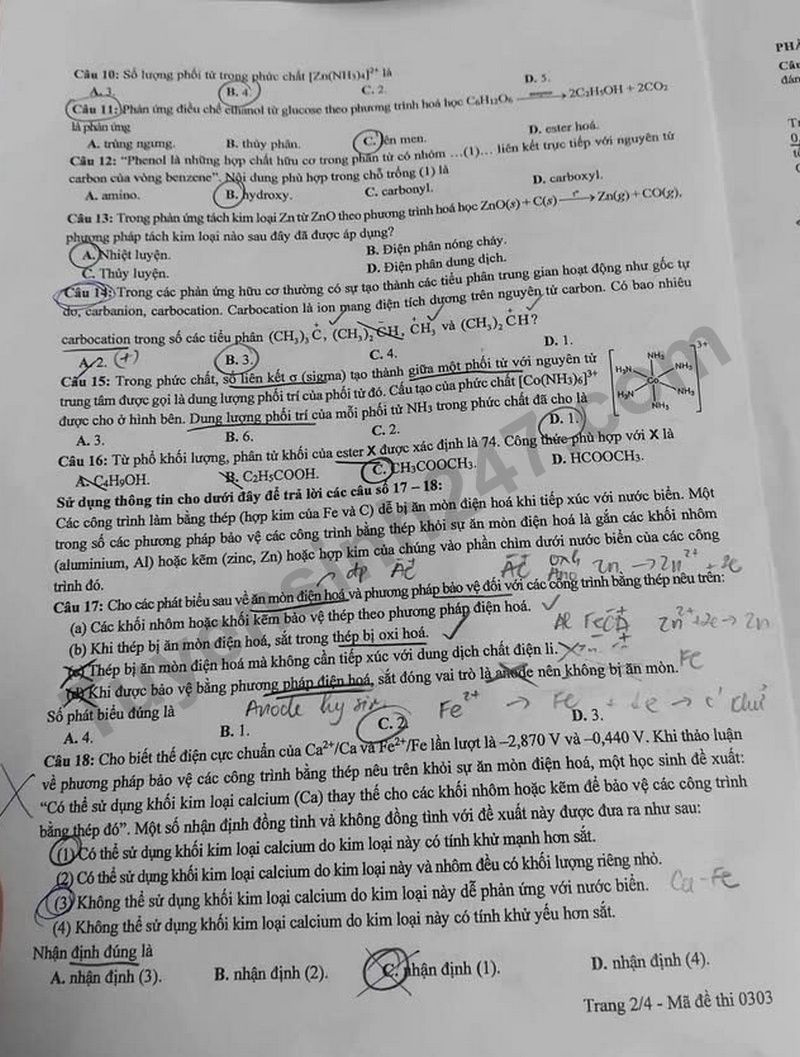 Câu 10: Số lượng phối tử trong phức chất [Zn(NH₃)₄]²⁺ là
A. 3. B. 4. C. 2. D. 5.
Câu 11: Phản ứng điều chế ethanol từ glucose theo phương trình hoá học C₆H₁₂O₆ ⟶ 2C₂H₅OH + 2CO₂
là phản ứng
A. trùng ngưng. B. thủy phân. C. lên men. D. ester hoá.
Câu 12: “Phenol là những hợp chất hữu cơ trong phân tử có nhóm …(1)… liên kết trực tiếp với nguyên tử
carbon của vòng benzene”. Nội dung phù hợp trong chỗ trống (1) là
A. amino. B. hydroxy. C. carbonyl. D. carboxyl.
Câu 13: Trong phản ứng tách kim loại Zn từ ZnO theo phương trình hoá học ZnO(s) + C(s) ⟶ Zn(g) + CO(g),
phương pháp tách kim loại nào sau đây đã được áp dụng?
A. Nhiệt luyện. B. Điện phân nóng chảy.
C. Thủy luyện. D. Điện phân dung dịch.
Câu 14: Trong các phản ứng hữu cơ thường có sự tạo thành các tiểu phân trung gian hoạt động như gốc tự
do, carbanion, carbocation. Carbocation là ion mang điện tích dương trên nguyên tử carbon. Có bao nhiêu
carbocation trong số các tiểu phân (CH₃)₃C⁺, (CH₃)₂CH, CH₃⁺ và (CH₃)₂CH⁺?
A. 2. (+) B. 3. C. 4. D. 1.
Câu 15: Trong phức chất, số liên kết σ (sigma) tạo thành giữa một phối tử với nguyên tử
trung tâm được gọi là dung lượng phối trí của phối tử đó. Cấu tạo của phức chất [Co(NH₃)₆]³⁺
được cho ở hình bên. Dung lượng phối trí của mỗi phối tử NH₃ trong phức chất đã cho là
NH₃ 3+
H₃N NH₃
Co
H₃N NH₃
NH₃
A. 3. B. 6. C. 2. D. 1.
Câu 16: Từ phổ khối lượng, phân tử khối của ester X được xác định là 74. Công thức phù hợp với X là
A. C₄H₉OH. B. C₂H₅COOH. C. CH₃COOCH₃. D. HCOOCH₃.
Sử dụng thông tin cho dưới đây để trả lời các câu số 17 – 18:
Các công trình làm bằng thép (hợp kim của Fe và C) dễ bị ăn mòn điện hoá khi tiếp xúc với nước biển. Một
trong số các phương pháp bảo vệ các công trình bằng thép khỏi sự ăn mòn điện hoá là gắn các khối nhôm
(aluminium, Al) hoặc kẽm (zinc, Zn) hoặc hợp kim của chúng vào phần chìm dưới nước biển của các công
trình đó.
Câu 17: Cho các phát biểu sau về ăn mòn điện hoá và phương pháp bảo vệ đối với các công trình bằng thép nêu trên:
(a) Các khối nhôm hoặc khối kẽm bảo vệ thép theo phương pháp điện hoá.
(b) Khi thép bị ăn mòn điện hoá, sắt trong thép bị oxi hoá.
(c) Thép bị ăn mòn điện hoá mà không cần tiếp xúc với dung dịch chất điện li.
(d) Khi được bảo vệ bằng phương pháp điện hoá, sắt đóng vai trò là anode nên không bị ăn mòn. Fe
Số phát biểu đúng là
A. 4. B. 1. C. 2. D. 3.
Câu 18: Cho biết thế điện cực chuẩn của Ca²⁺/Ca và Fe²⁺/Fe lần lượt là –2,870 V và –0,440 V. Khi thảo luận
về phương pháp bảo vệ các công trình bằng thép nêu trên khỏi sự ăn mòn điện hoá, một học sinh đề xuất:
“Có thể sử dụng khối kim loại calcium (Ca) thay thế cho các khối nhôm hoặc kẽm để bảo vệ các công trình
bằng thép đó”. Một số nhận định đồng tình và không đồng tình với đề xuất này được đưa ra như sau:
(1) Có thể sử dụng khối kim loại calcium do kim loại này có tính khử mạnh hơn sắt.
(2) Có thể sử dụng khối kim loại calcium do kim loại này và nhôm đều có khối lượng riêng nhỏ.
(3) Không thể sử dụng khối kim loại calcium do kim loại này dễ phản ứng với nước biển. Ca - Fe
(4) Không thể sử dụng khối kim loại calcium do kim loại này có tính khử yếu hơn sắt.
Nhận định đúng là
A. nhận định (3). B. nhận định (2). C. nhận định (1). D. nhận định (4).
Trang 2/4 - Mã đề thi 0303